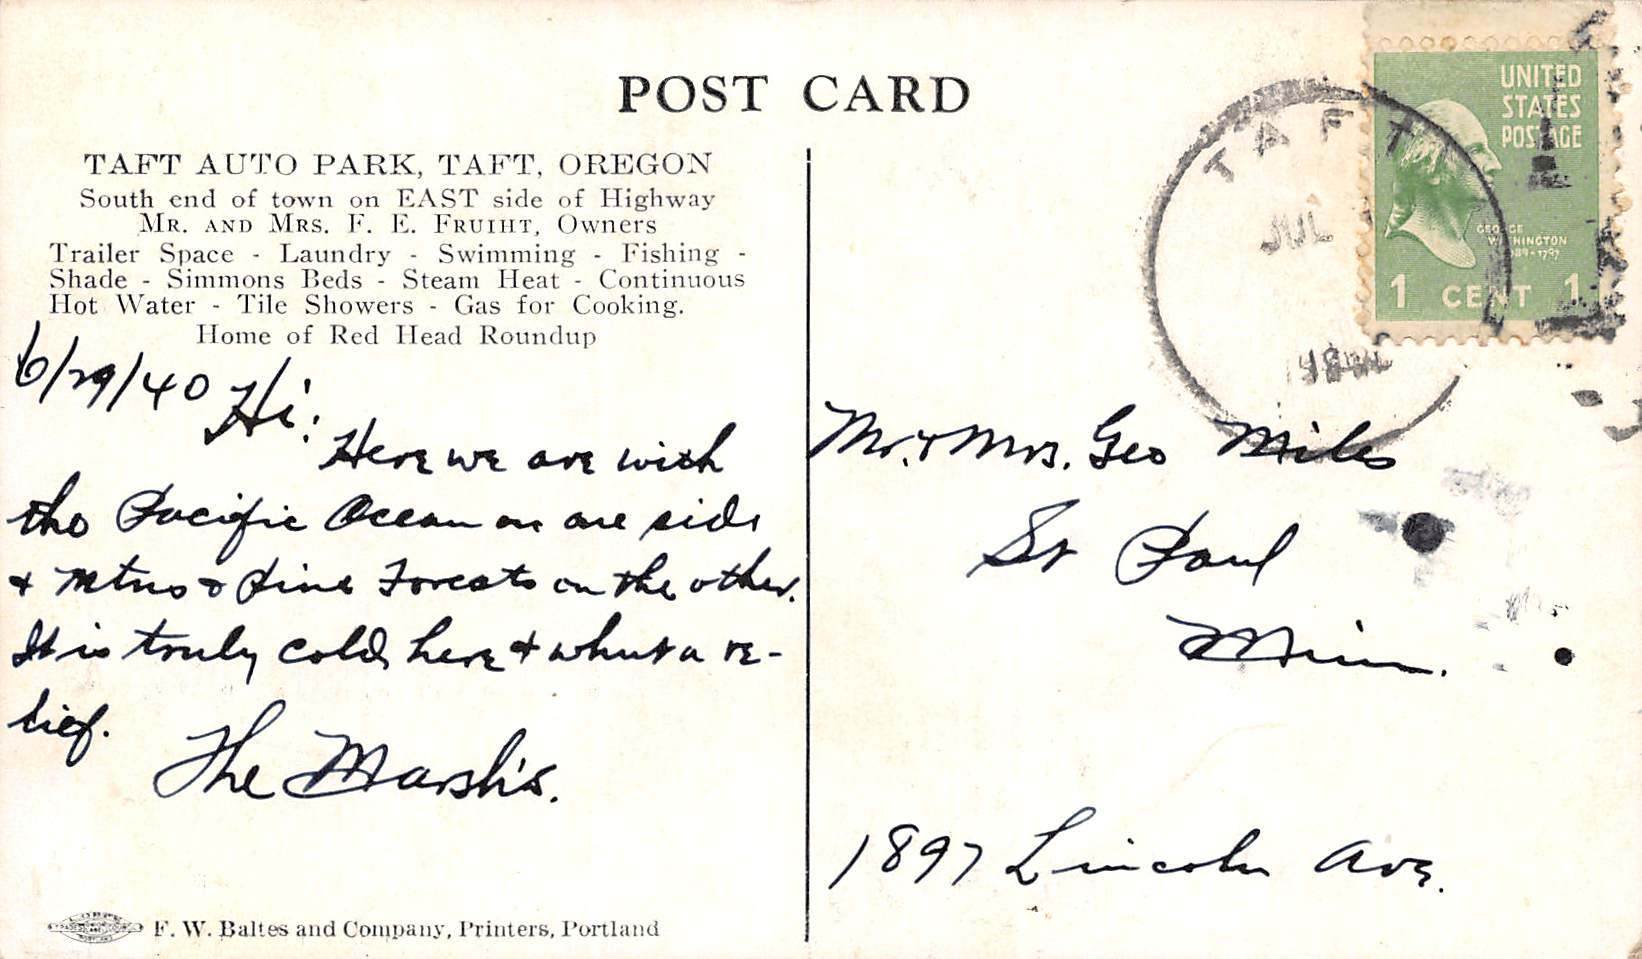 POST CARD
TAFT AUTO PARK, TAFT, OREGON
South end of town on EAST side of Highway
MR. AND MRS. F. E. FRUIHT, Owners
Trailer Space - Laundry - Swimming - Fishing -
Shade - Simmons Beds - Steam Heat - Continuous
Hot Water - Tile Showers - Gas for Cooking.
Home of Red Head Roundup
6/29/40 Hi:
Here we are with
the Pacific Ocean on one side
& Mtns & Pine Forests on the other.
It is truly cold here & what a re-
lief.
The Marsh's.
F. W. Baltes and Company, Printers, Portland
TAFT
JUL
UNITED
STATES
POSTAGE
GEORGE
WASHINGTON
1789-1797
1 CENT 1
Mr. & Mrs. Geo Miles
St Paul
Minn.
1897 Lincoln Ave.